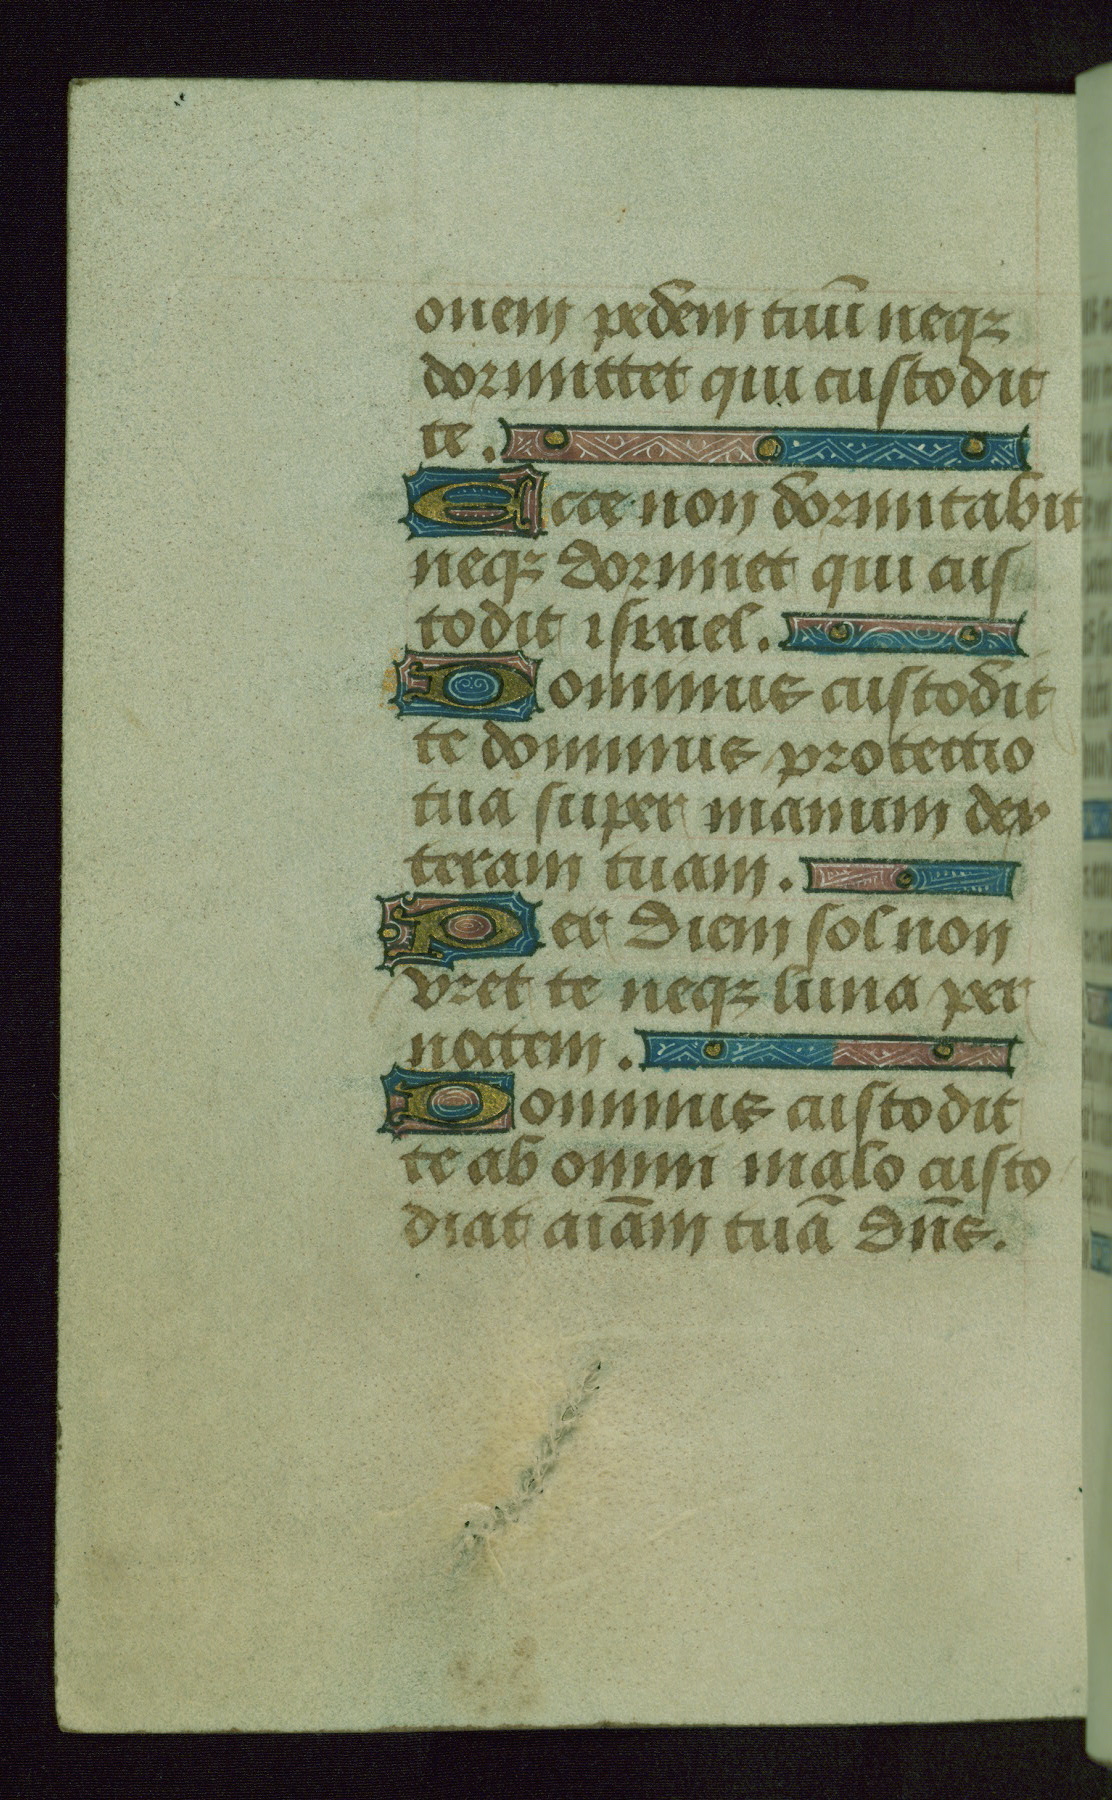 onem pedem tuū neqȝ
dormittet qui custodit
te.
Ecce non dormitabit
neqȝ dormiet qui cus
todit israel.
Dominus custodit
te dominus protectio
tua super manum dex
teram tuam.
Per diem sol non
vret te neqȝ luna per
noctem.
Dominus custodit
te ab omni malo custo
diat aīam tuā dn̄s.